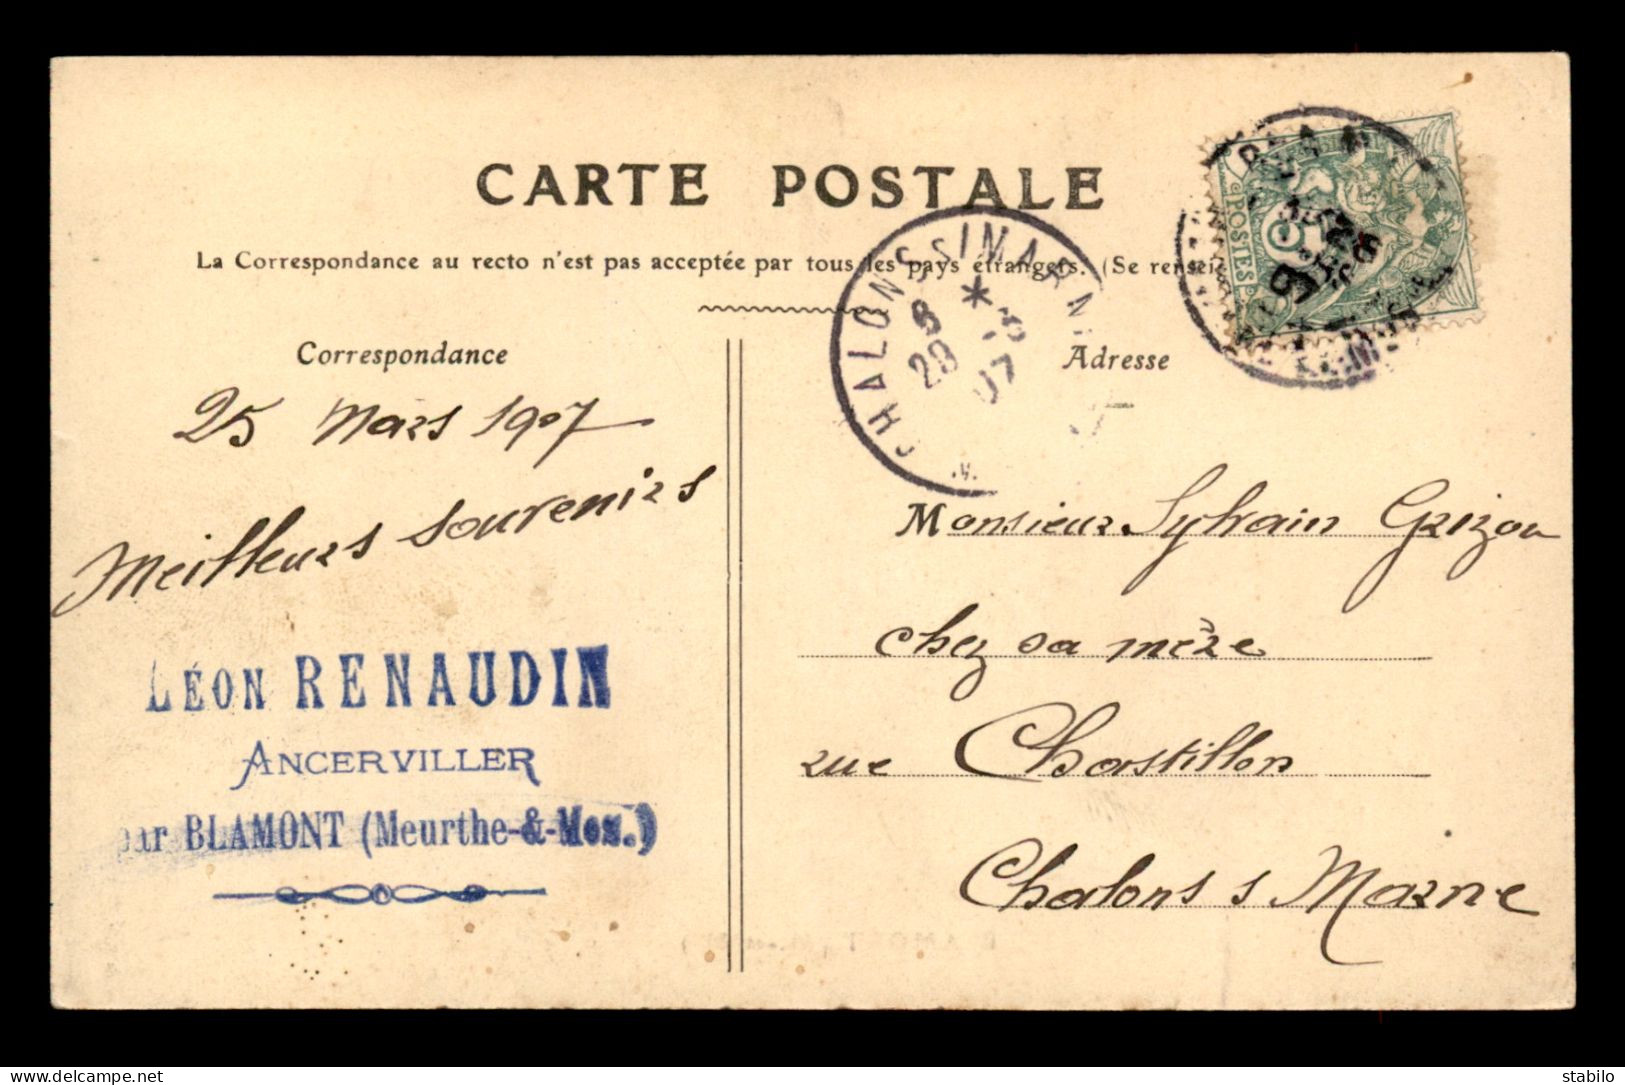 CARTE POSTALE
La Correspondance au recto n'est pas acceptée par tous les pays étrangers. (Se rensei
Correspondance
Adresse
POSTES
CHALONS S/MARNE
8 * -3
28 07
25 Mars 1907
Meilleurs souvenirs
LÉON RENAUDIN
ANCERVILLER
par BLAMONT (Meurthe-&-Mos.)
Monsieur Sylvain Grizou
chez sa mère
rue Chastillon
Chalons s Marne
delcampe.net
stabilo